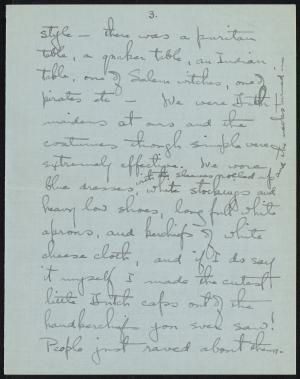 3.
style - there was a puritan
table, a quaker table, an Indian
table, one of Salem witches, one of
pirates etc - We were Dutch
maidens at ours and the
costumes though simple were
extremely effective. We wore
with the sleeves pushed up
blue dresses, white stockings and
heavy low shoes, long full white
aprons, and kerchiefs of white
cheese cloth, and if I do say
it myself I made the cutest
little Dutch caps out of the
handkerchief you ever saw!
People just raved about them.
and the necks turned in